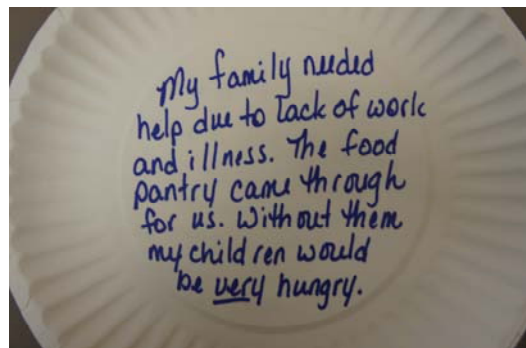 My family needed
help due to lack of work
and illness. The food
pantry came through
for us. Without them
my children would
be very hungry.